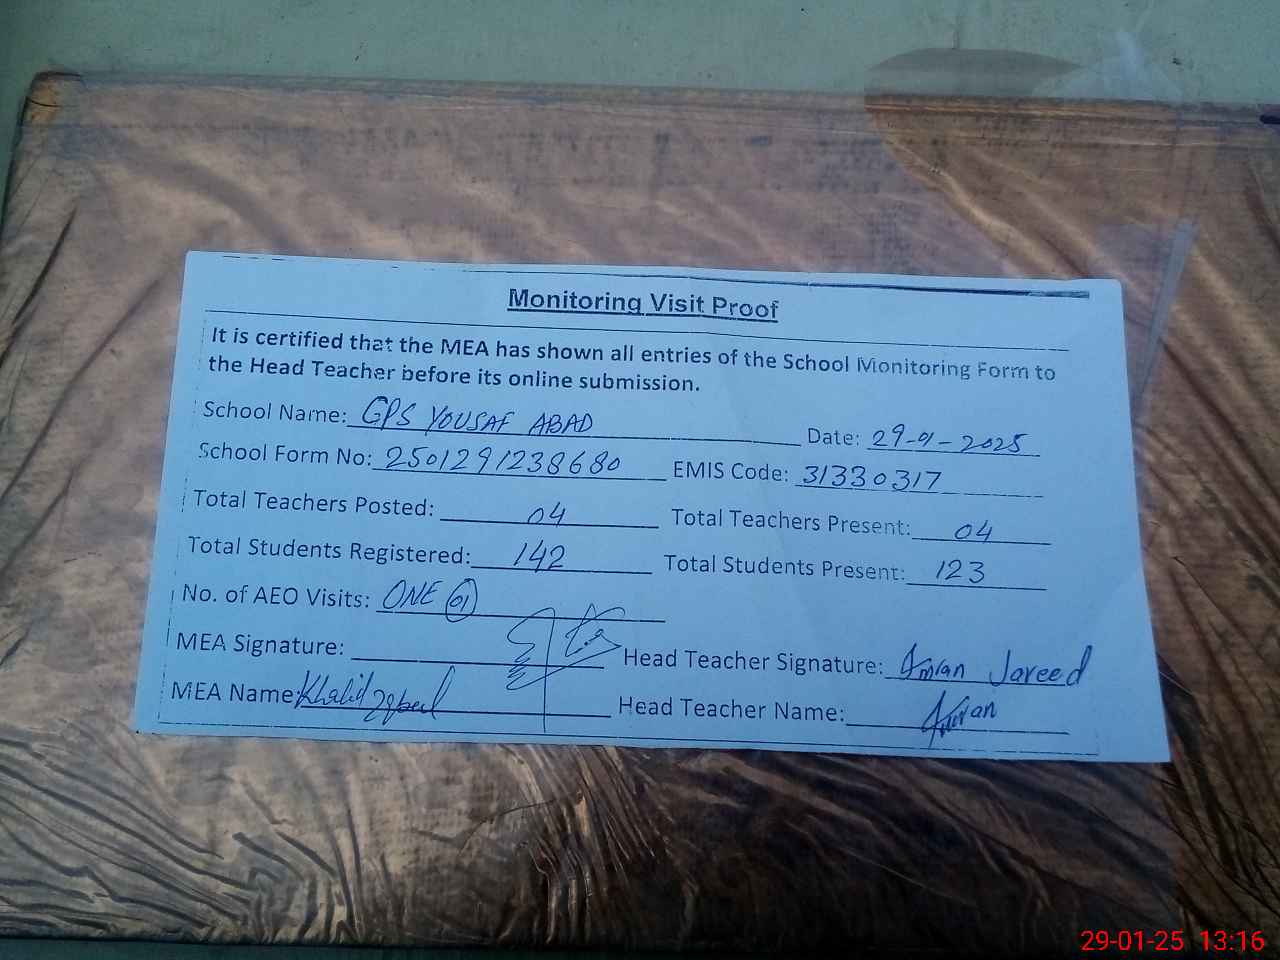 Monitoring Visit Proof
It is certified that the MEA has shown all entries of the School Monitoring Form to
the Head Teacher before its online submission.
School Name: GPS YOUSAF ABAD Date: 29-01-2025
School Form No: 2501291238680 EMIS Code: 31330317
Total Teachers Posted: 04 Total Teachers Present: 04
Total Students Registered: 142 Total Students Present: 123
No. of AEO Visits: ONE 01
MEA Signature: Head Teacher Signature: Imran Javeed
MEA Name: Khalid Iqbal Head Teacher Name: Imran
29-01-25 13:16